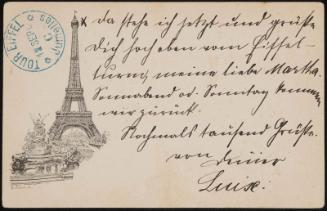 TOUR EIFFEL
12 SEP
x da stehe ich jetzt und grüße
Dich hoch oben vom Eiffel-
turm, meine liebe Martha.
Sonnabend od. Sonntag kommen
wir zurück.
Nochmals tausend Grüße
von Deiner